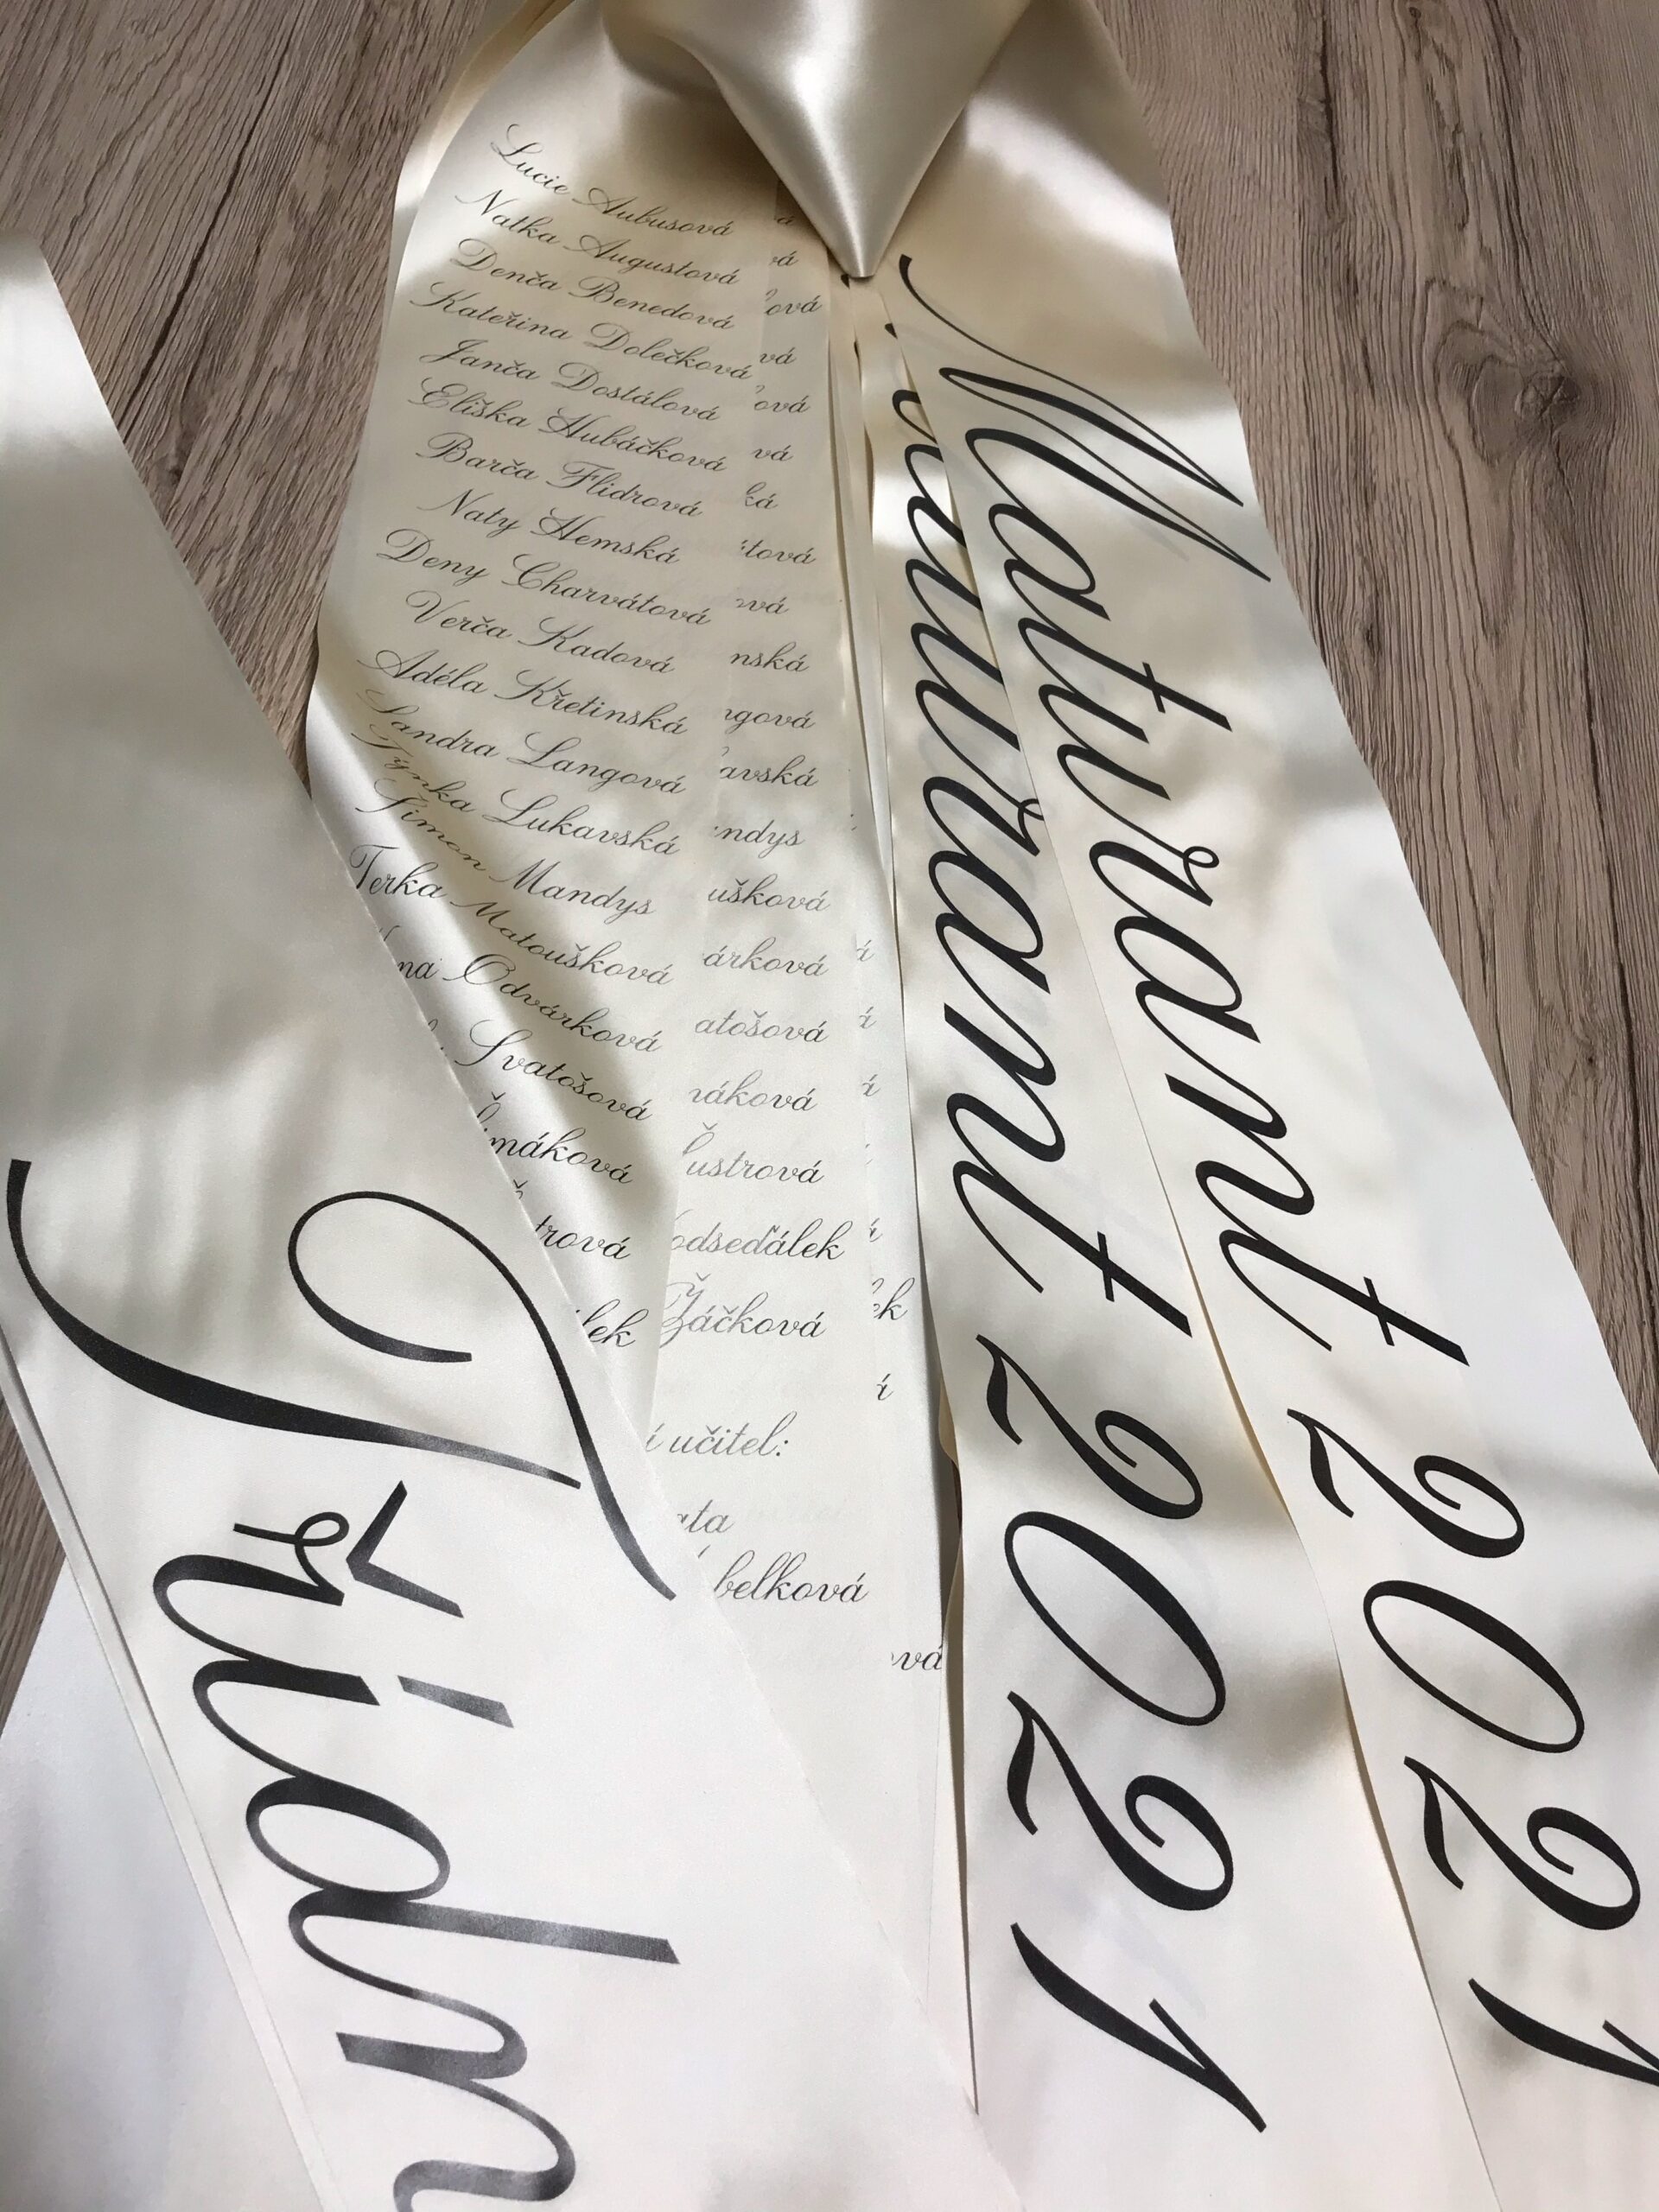 Lucie Aubusová
Natka Augustová
Denča Benedová
Kateřina Dolečková
Janča Dostálová
Eliška Hubáčková
Barča Flidrová
Naty Hemská
Deny Charvátová
Verča Kadová
Adéla Křetinská
Sandra Langová
Týnka Lukavská
Šimon Mandys
Terka Matoušková
na Odvárková
Svatošová
imáková
trová
lek
ová
vá
ová
vá
ká
tová
vá
nská
ngová
avská
ndys
ušková
árková
atošová
ráková
ustrová
odseďálek
Žáčková
í učitel:
ata
belková
ek
ová
turant 2021
Maturant 2021
Třídn